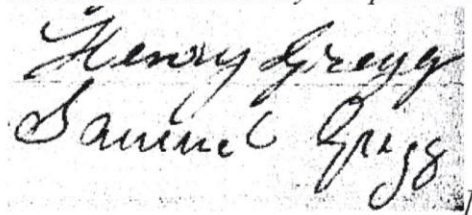 Henry Gregg
Samuel Gregg